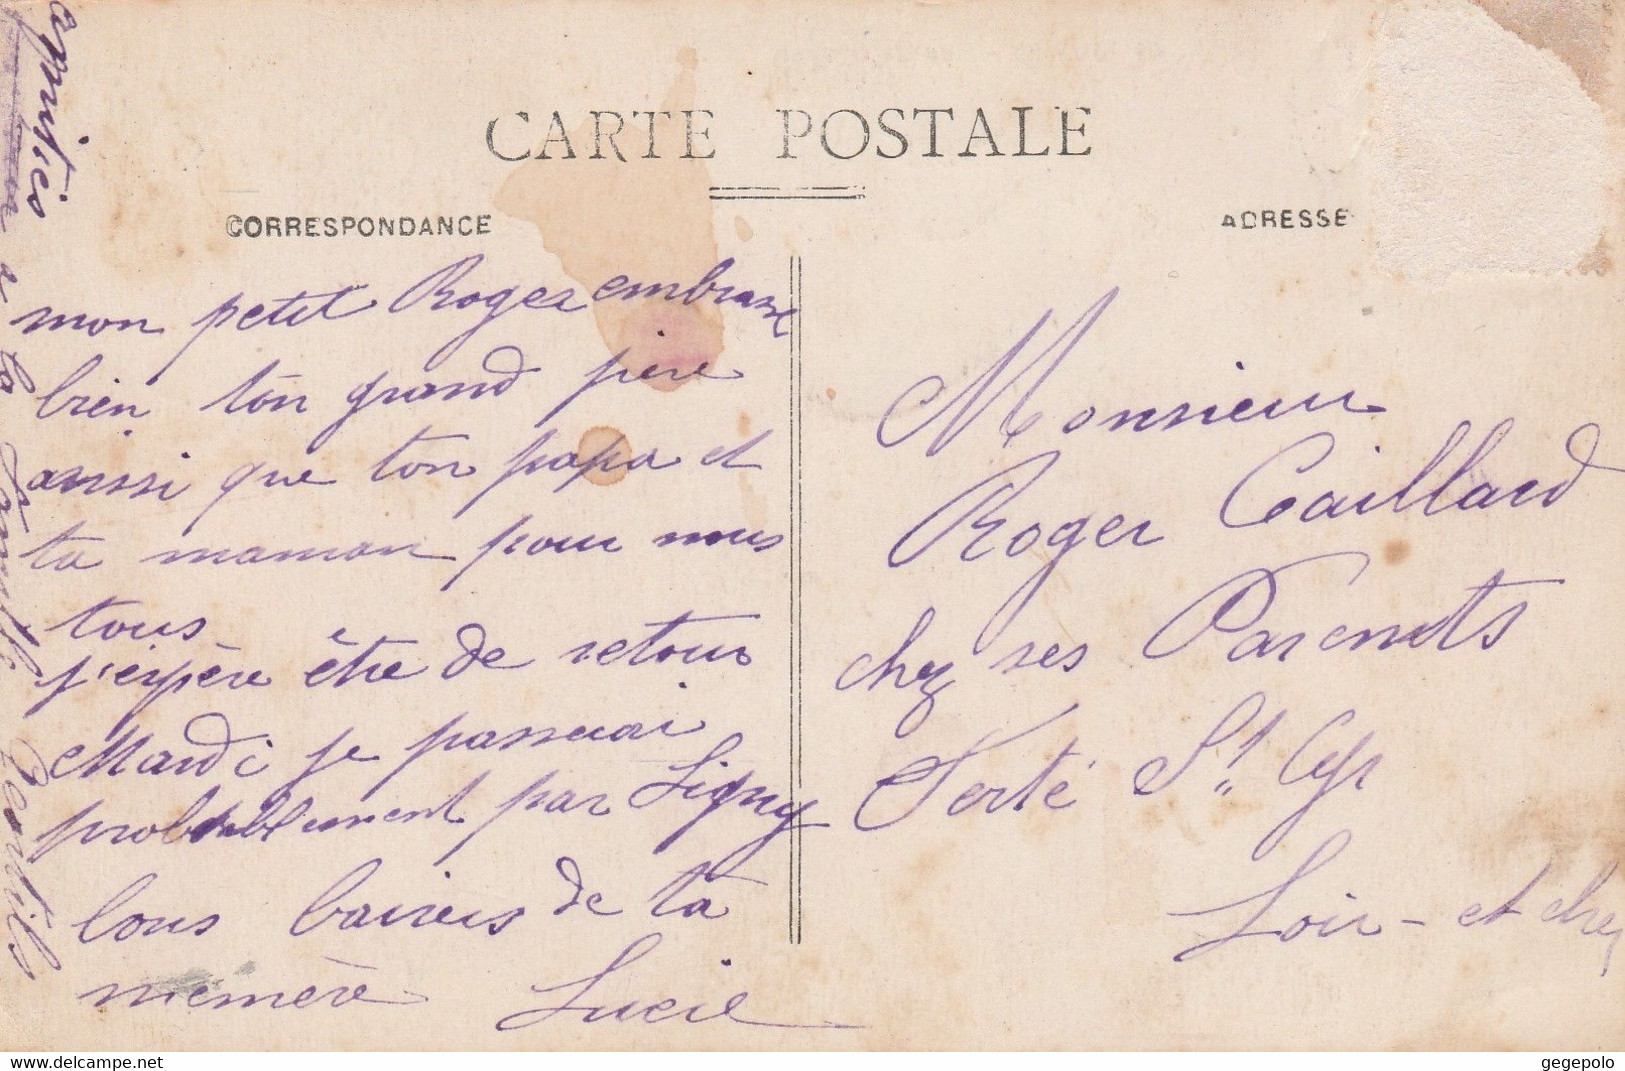 CARTE POSTALE
CORRESPONDANCE
ADRESSE
mon petit Roger embrasse
bien ton grand père
aussi que ton papa et
ta maman pour nous
tous
j'espère être de retour
Mardi je passerai
probablement par Ligny
bons baisers de ta
memère Lucie
à la famille Gentils
Monsieur
Roger Caillard
chez ses Parents
Ferté St Cyr
Loir-et cher
delcampe.net
gegepolo